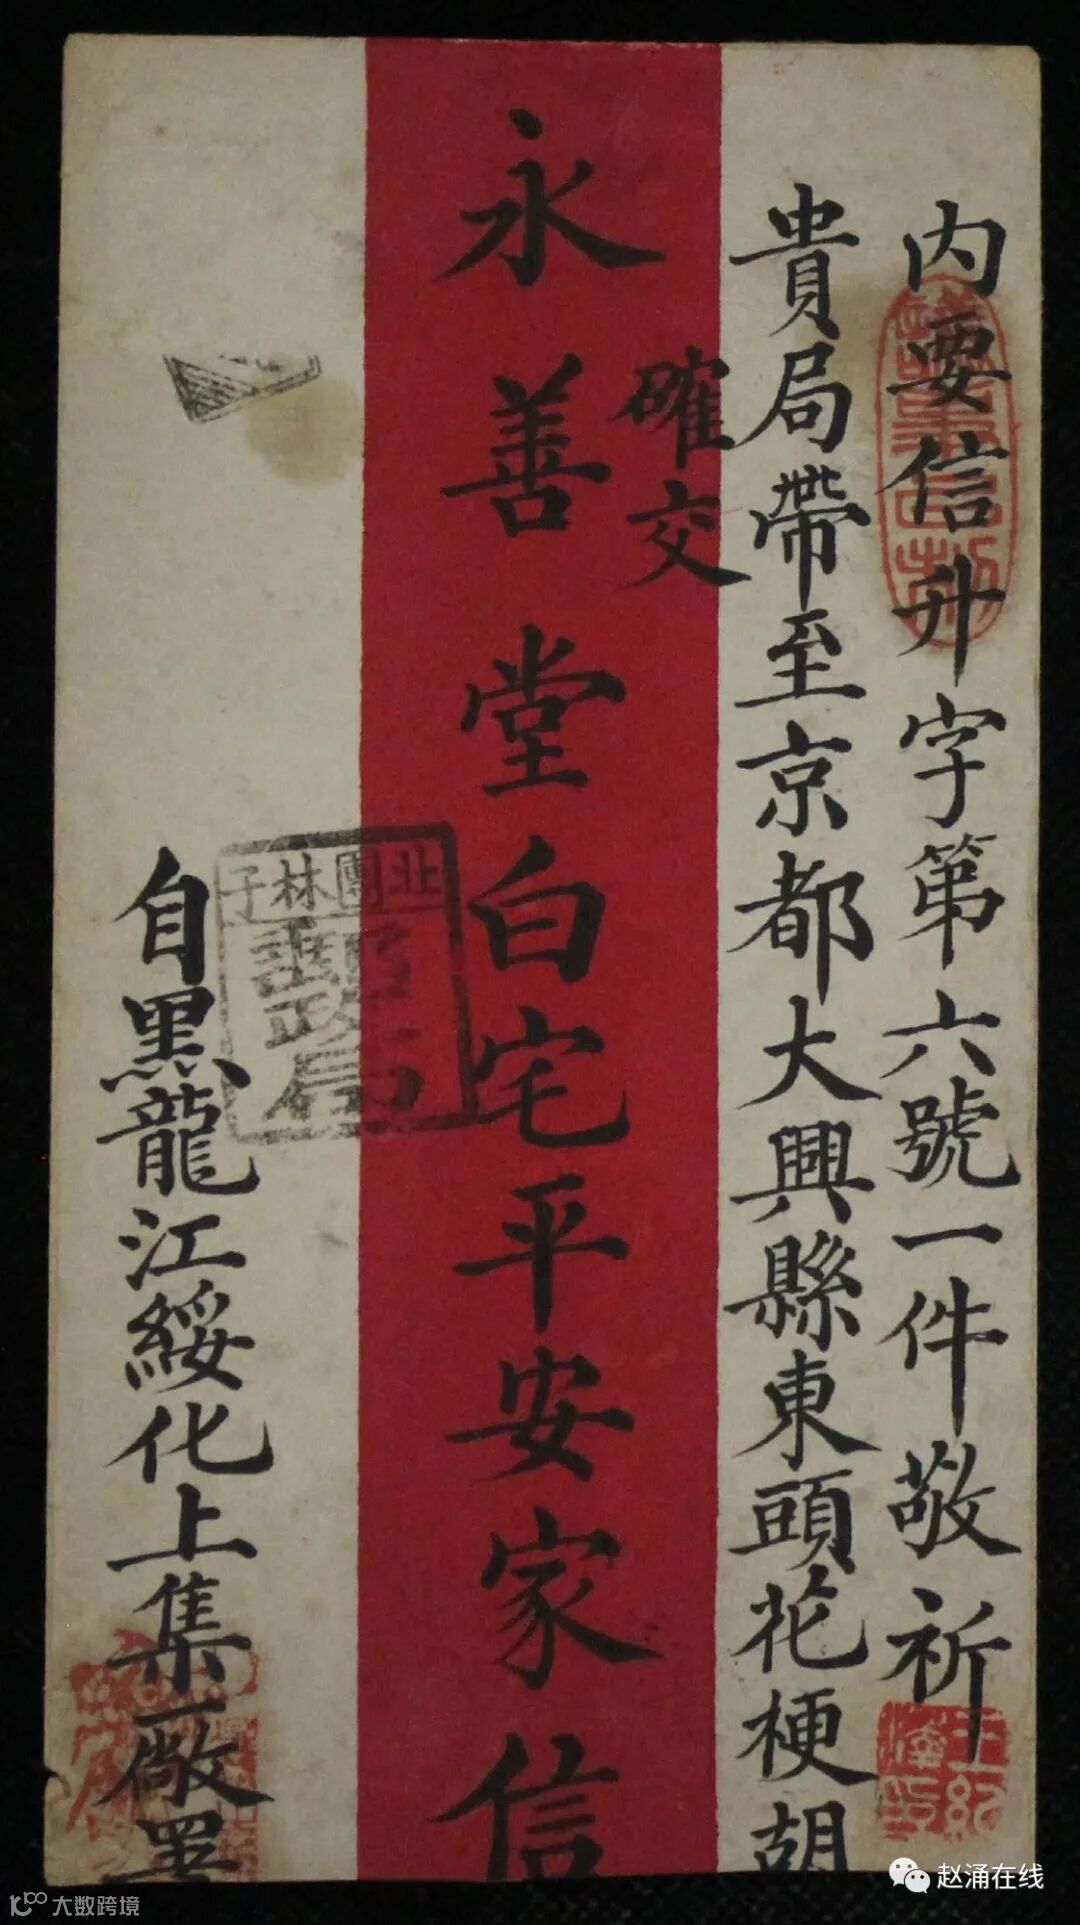 内要信升字第六號一件敬祈
貴局帶至京都大興縣東頭花梗胡
確交
永善堂白宅平安家信
北團林子
郵政局
自黑龍江綏化上集廠畧
赵涌在线
大数跨境